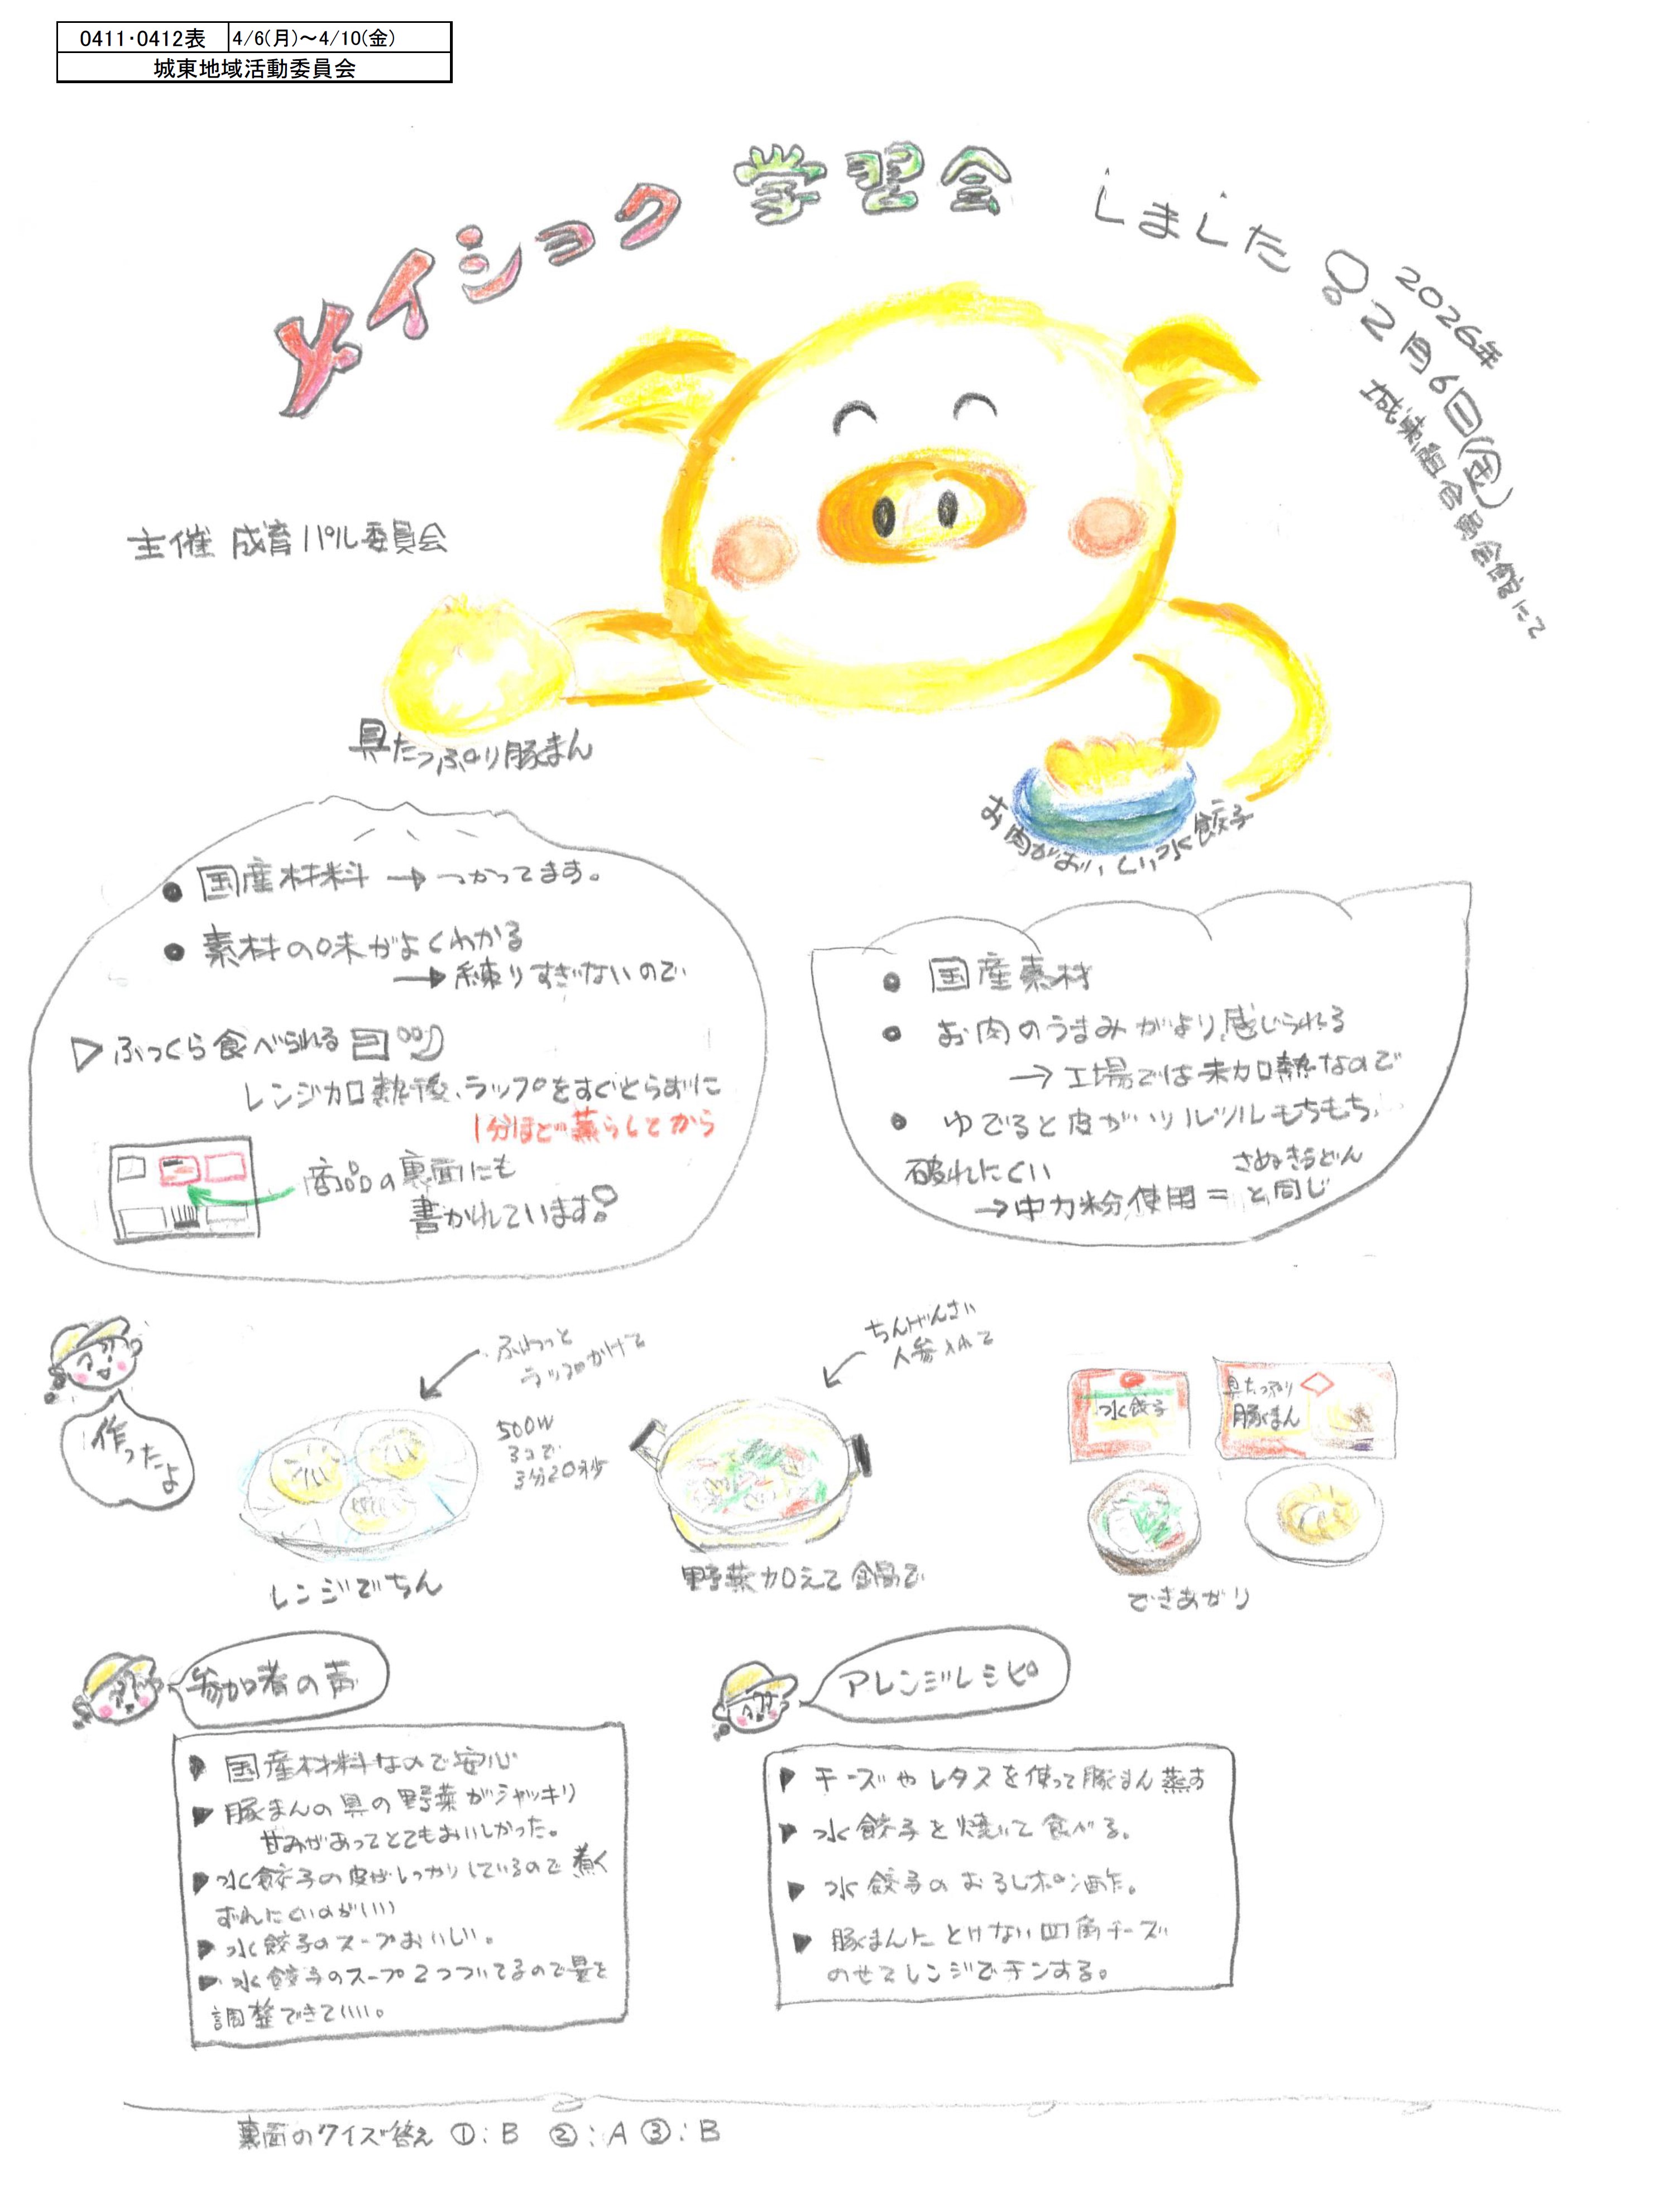 0411・0412表 4/6(月)～4/10(金)
城東地域活動委員会
メイショク 学習会 しました！
2026年
2月6日(金)
城東組合員会館にて
主催 成育パル委員会
具たっぷり豚まん
お肉がおいしい水餃子
● 国産材料 → つかってます。
● 素材の味がよくわかる
→ 練りすぎないので
▷ ふっくら食べられるヨ
レンジ加熱後、ラップをすぐとらずに
1分ほど蒸らしてから
商品の裏面にも
書かれています！
● 国産素材
● お肉のうまみがより感じられる
→ 工場では未加熱なので
● ゆでると皮がツルツルもちもち
破れにくい
→ 中力粉使用 = さぬきうどんと同じ
作ったよ
ふわっと
ラップかけて
500W
3コで
3分20秒
レンジでちん
ちんげんさい
人参入れて
野菜加えて鍋で
水餃子
具たっぷり
豚まん
できあがり
参加者の声
▶ 国産材料なので安心
▶ 豚まんの具の野菜がシャッキリ
甘みがあってとてもおいしかった。
▶ 水餃子の皮がしっかりしているので煮く
ずれにくいのがいい
▶ 水餃子のスープおいしい。
▶ 水餃子のスープ2つついてるので量を
調整できていい。
アレンジレシピ
▶ チーズやレタスを使って豚まん蒸す
▶ 水餃子を焼いて食べる。
▶ 水餃子のおろしポン酢。
▶ 豚まんにとけない四角チーズ
のせてレンジでチンする。
裏面のクイズ答え ①:B ②:A ③:B